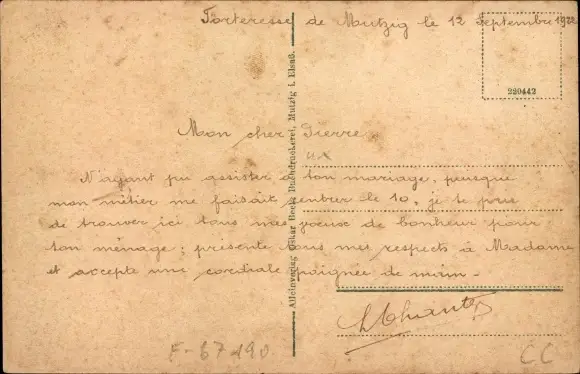 Forteresse de Mutzig le 12 Septembre 1922
220442
Mon cher Pierre
N'ayant pu assister à ton mariage, puisque
mon métier me faisait rentrer le 10, je te prie
de trouver ici tous mes voeux de bonheur pour
ton ménage ; présente tous mes respects à Madame
et accepte une cordiale poignée de main -
Alleinverlag Oskar Beck, Buchdruckerei, Mutzig i. Elsaß.
F-67190
CC